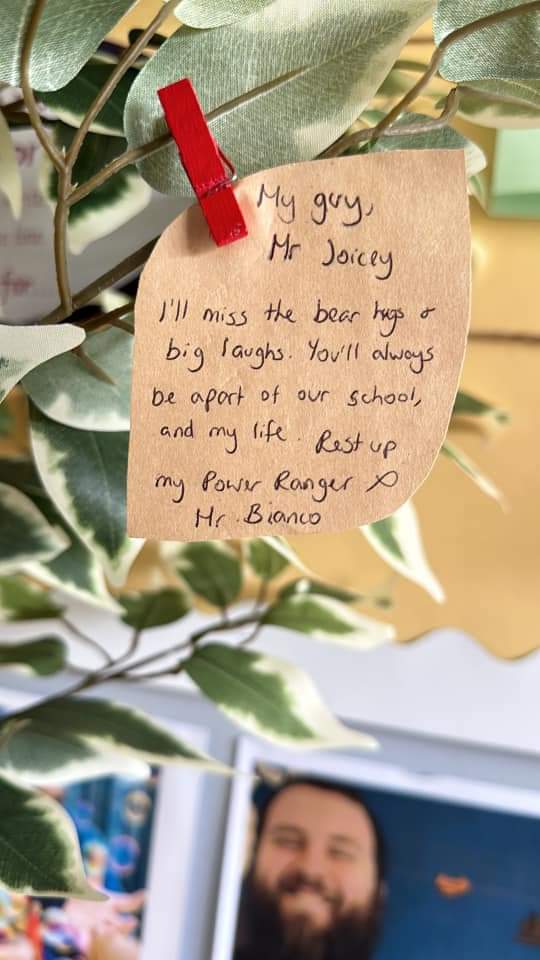 My guy,
Mr Joicey
I'll miss the bear hugs &
big laughs. You'll always
be apart of our school,
and my life. Rest up
my Power Ranger x
Mr. Bianco
or
for